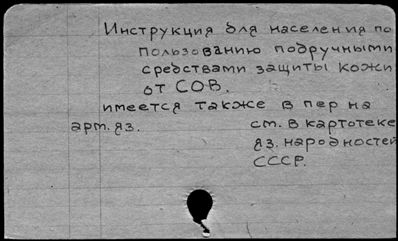 Инструкция для населения по
пользованию подручными
средствами защиты кожи
от СОВ.
имеется также в пер на
арм. яз. см. в картотеке
яз. народностей
СССР.